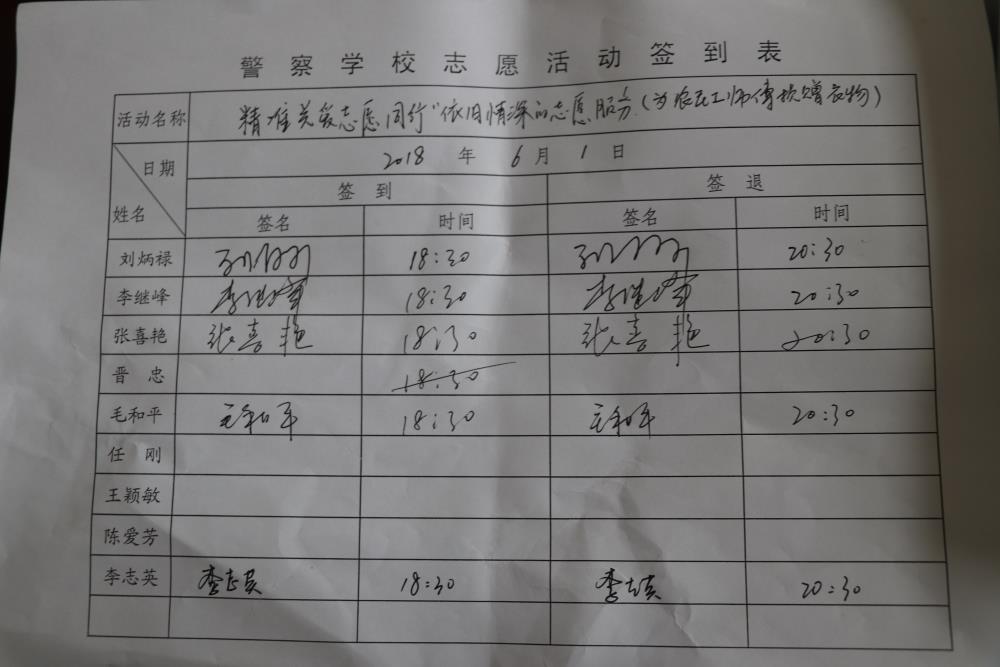 警察学校志愿活动签到表
活动名称 精准关爱志愿同行"依旧情深的志愿服务(为农民工师傅捐赠衣物)
日期 2018 年 6 月 1 日
签 到 签 退
姓名 签名 时间 签名 时间
刘炳禄 18:30 20:30
李继峰 李继峰 18:30 李继峰 20:30
张喜艳 张喜艳 18:30 张喜艳 20:30
晋 忠 18:30
毛和平 毛和平 18:30 毛和平 20:30
任 刚
王颖敏
陈爱芳
李志英 李志英 18:30 李志英 20:30